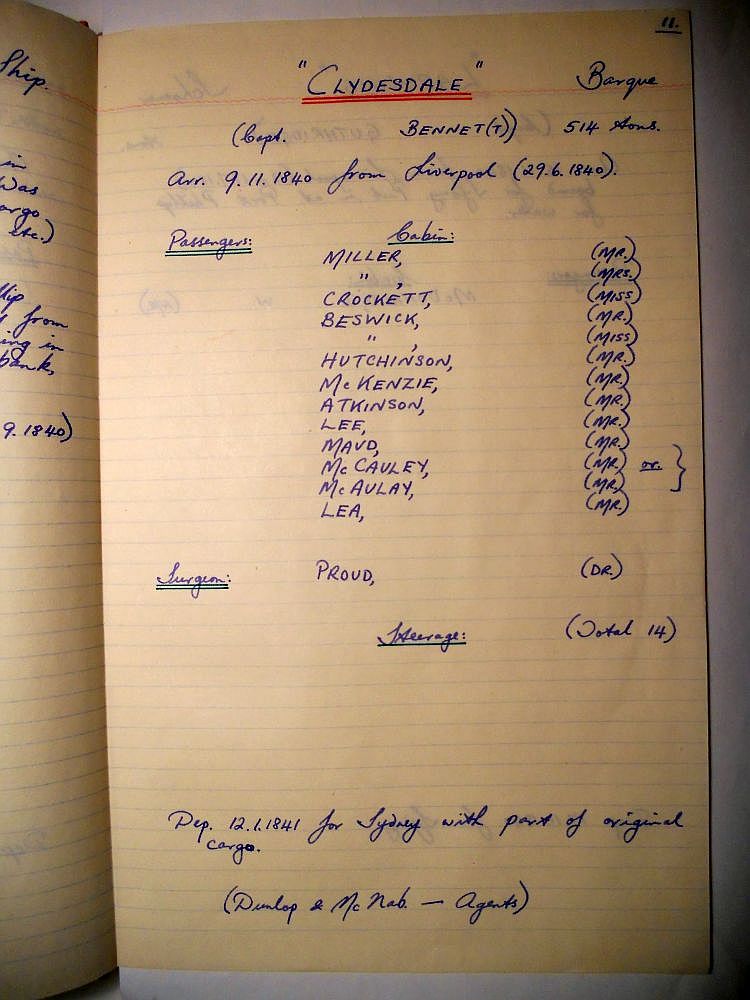 Ship.
in
was
argo
etc.)
from
ing in
bank,
9. 1840)
11.
"CLYDESDALE" Barque
(Capt. BENNET(T)) 514 tons.
Arr. 9.11.1840 from Liverpool (29.6.1840).
Passengers: Cabin:
MILLER, (MR.)
" , (MRS.)
CROCKETT, (MISS)
BESWICK, (MR.)
" , (MISS)
HUTCHINSON, (MR.)
McKENZIE, (MR.)
ATKINSON, (MR.)
LEE, (MR.)
MAUD, (MR.)
McCAULEY, (MR.) or }
McAULAY, (MR.)
LEA, (MR.)
Surgeon: PROUD, (DR.)
Steerage: (Total 14)
Dep. 12.1.1841 for Sydney with part of original
cargo.
(Dunlop & McNab. — Agents)